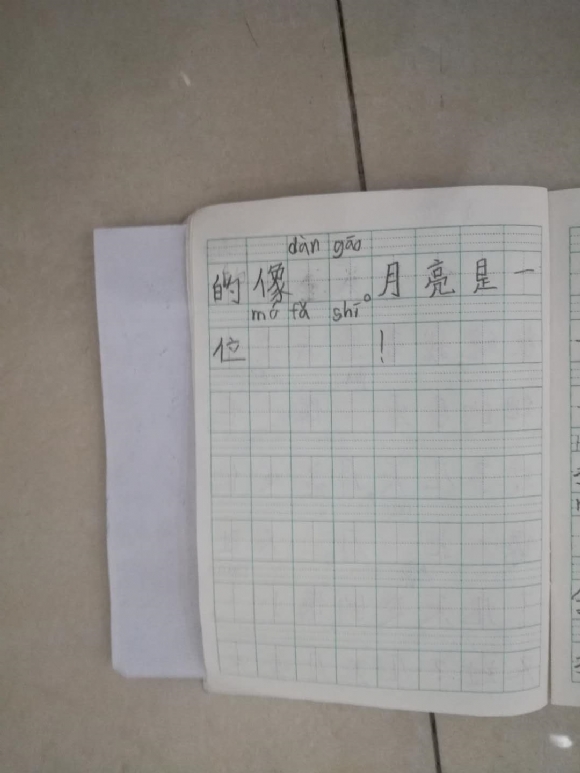 dàn gāo
的像。月亮是一
mó fǎ shī
位！